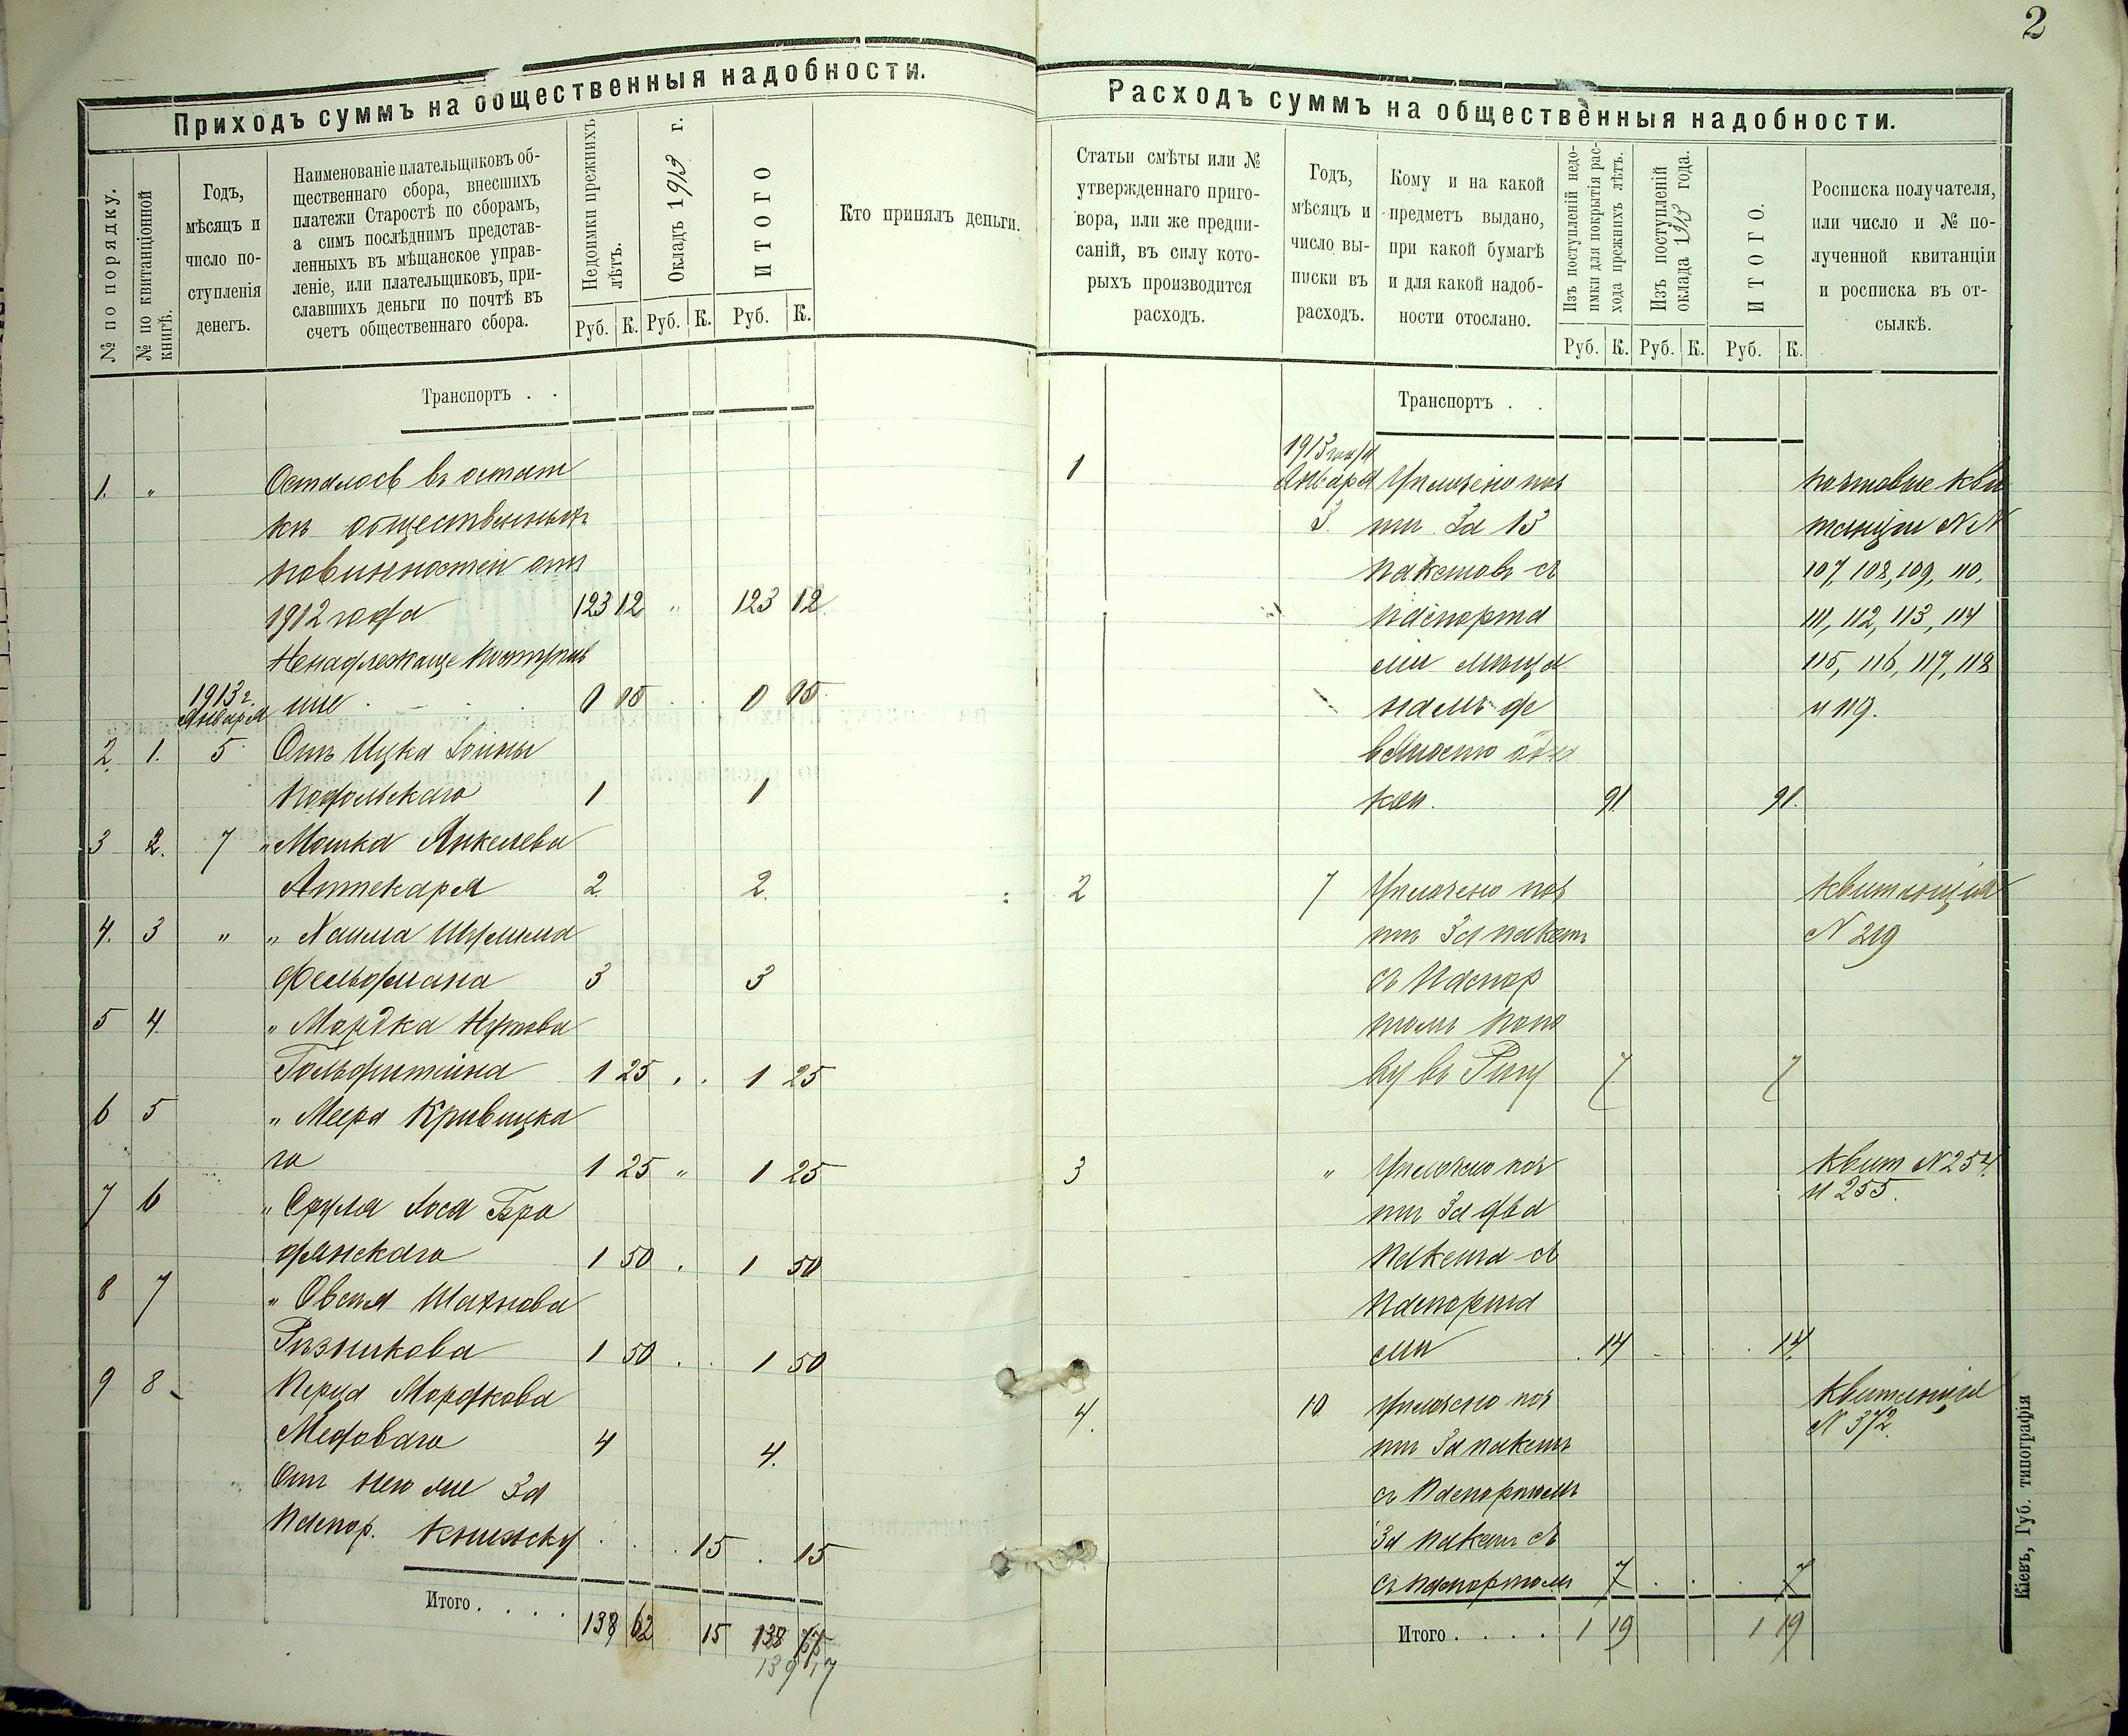 2
Приходъ суммъ на общественныя надобности.
№ по порядку.
№ по квитанціонной книгѣ.
Годъ,
мѣсяцъ и
число по-
ступленія
денегъ.
Наименованіе плательщиковъ об-
щественнаго сбора, внесшихъ
платежи Старостѣ по сборамъ,
а симъ послѣднимъ представ-
ленныхъ въ мѣщанское управ-
леніе, или плательщиковъ, при-
славшихъ деньги по почтѣ въ
счетъ общественнаго сбора.
Недоимки прежнихъ
лѣтъ.
Окладъ 1913 г.
ИТОГО
Руб. К. Руб. К. Руб. К.
Кто принялъ деньги.
Транспортъ . .
1. " Осталось въ остат
кѣ общественныхъ
повинностей отъ
1912 года 123 12 " 123 12
Ненадлежаще
1913 г.
Января
2. 1. 5 Отъ Ицка
Подольскаго 1 1
3 2. 7 " Мошка Янкелева
Аптекаря 2 2.
4. 3 " " Хаима
Фельдмана 3 3
5 4. " Мордка
Гольдштейна 1 25 . . 1 25
6 5 " Меера Кривицка
го 1 25 " 1 25
7 6 " Срула Іося Бро
дянскаго 1 50 . 1 50
8 7 " Овсія Шахнова
Рѣзникова 1 50 . . 1 50
9 8 Переца Мордкова
Медоваго 4 4.
Отъ него же за
паспор. книжку . . . 15 . 15
Итого . . . . 138 62 15 138 77
139 17
Расходъ суммъ на общественныя надобности.
Статьи смѣты или №
утвержденнаго приго-
вора, или же предпи-
саній, въ силу кото-
рыхъ производится
расходъ.
Годъ,
мѣсяцъ и
число вы-
писки въ
расходъ.
Кому и на какой
предметъ выдано,
при какой бумагѣ
и для какой надоб-
ности отослано.
Изъ поступленій недо-
имки для покрытія рас-
хода прежнихъ лѣтъ.
Изъ поступленій
оклада 1913 года.
ИТОГО.
Руб. К. Руб. К. Руб. К.
Росписка получателя,
или число и № по-
лученной квитанціи
и росписка въ от-
сылкѣ.
Транспортъ . .
1913 года
1 Января Уплачено поч почтовые кви
3. тѣ за 13 танціи №№
пакетовъ съ 107, 108, 109, 110,
паспорта 111, 112, 113, 114
ми мѣща 115, 116, 117, 118
намъ де и 119.
вяносто одна
коп. 91 91.
2 7 Уплачено поч квитанція
тѣ за пакетъ № 219
съ паспор
томъ
въ Ригу 7 7
3 " Уплачено поч Квит № 254
тѣ за два и 255.
пакета съ
паспорта
ми . 14 . . 14
4. 10 Уплачено поч Квитанція
тѣ за пакетъ № 372.
съ паспортомъ
за пакетъ съ
съ паспортомъ 7 . . . 7
Итого . . . . 1 19 1 19
Кіевъ, Губ. типографія